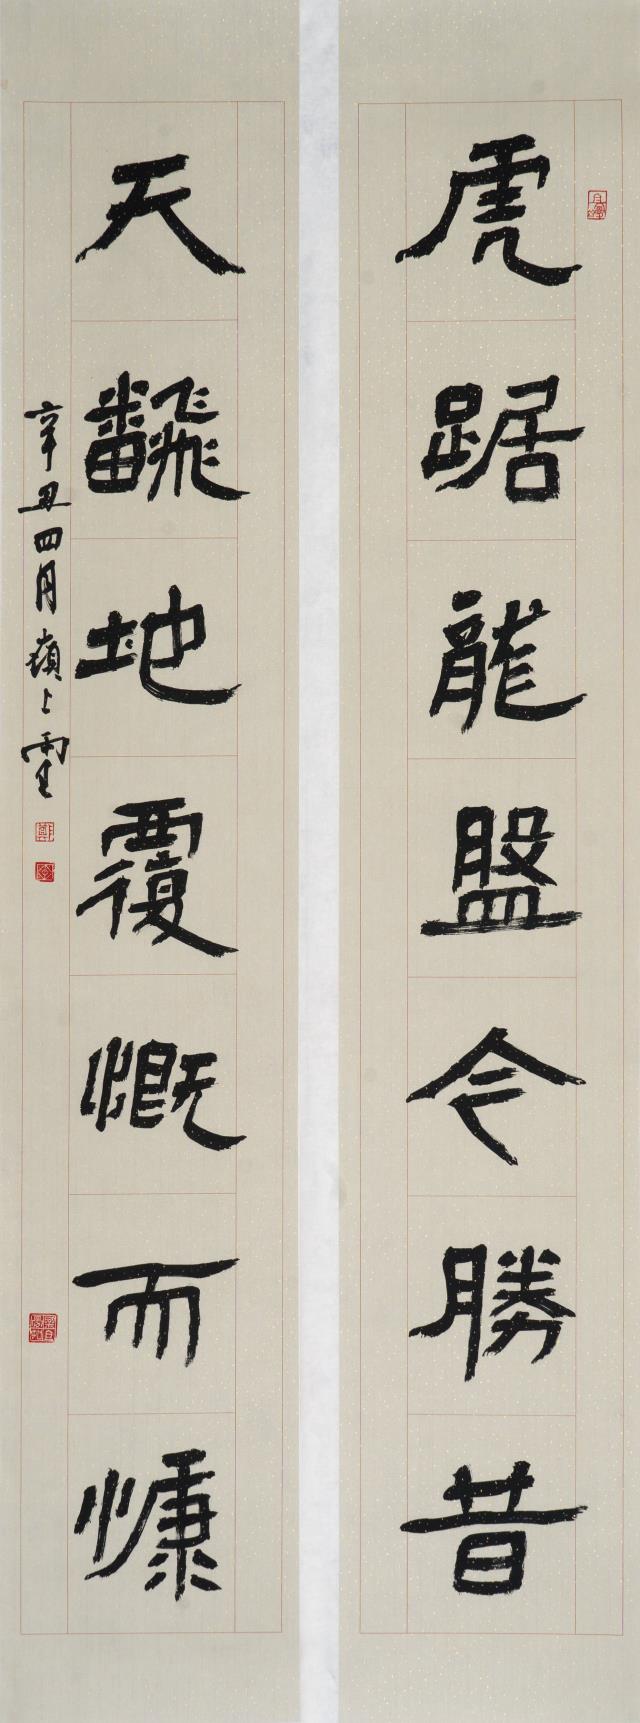 虎踞龍盤今勝昔
天飜地覆慨而慷
辛丑四月嶺上雲